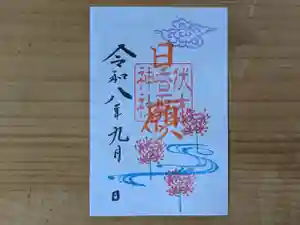 日願
伏木
神社
令和八年九月 日